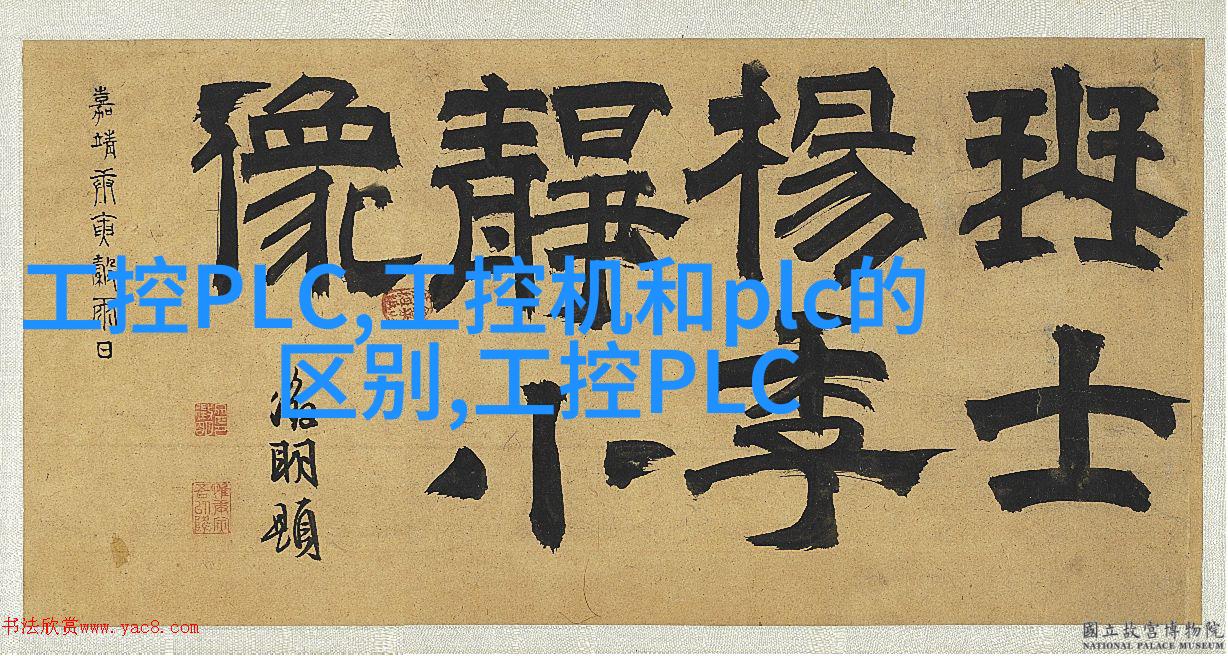 班士
楊季
靜小
像
嘉靖庚寅穀雨日
明題
工控PLC,工控机和plc的
区别,工控PLC
书法欣赏www.yac8.com
國立故宮博物院
NATIONAL PALACE MUSEUM